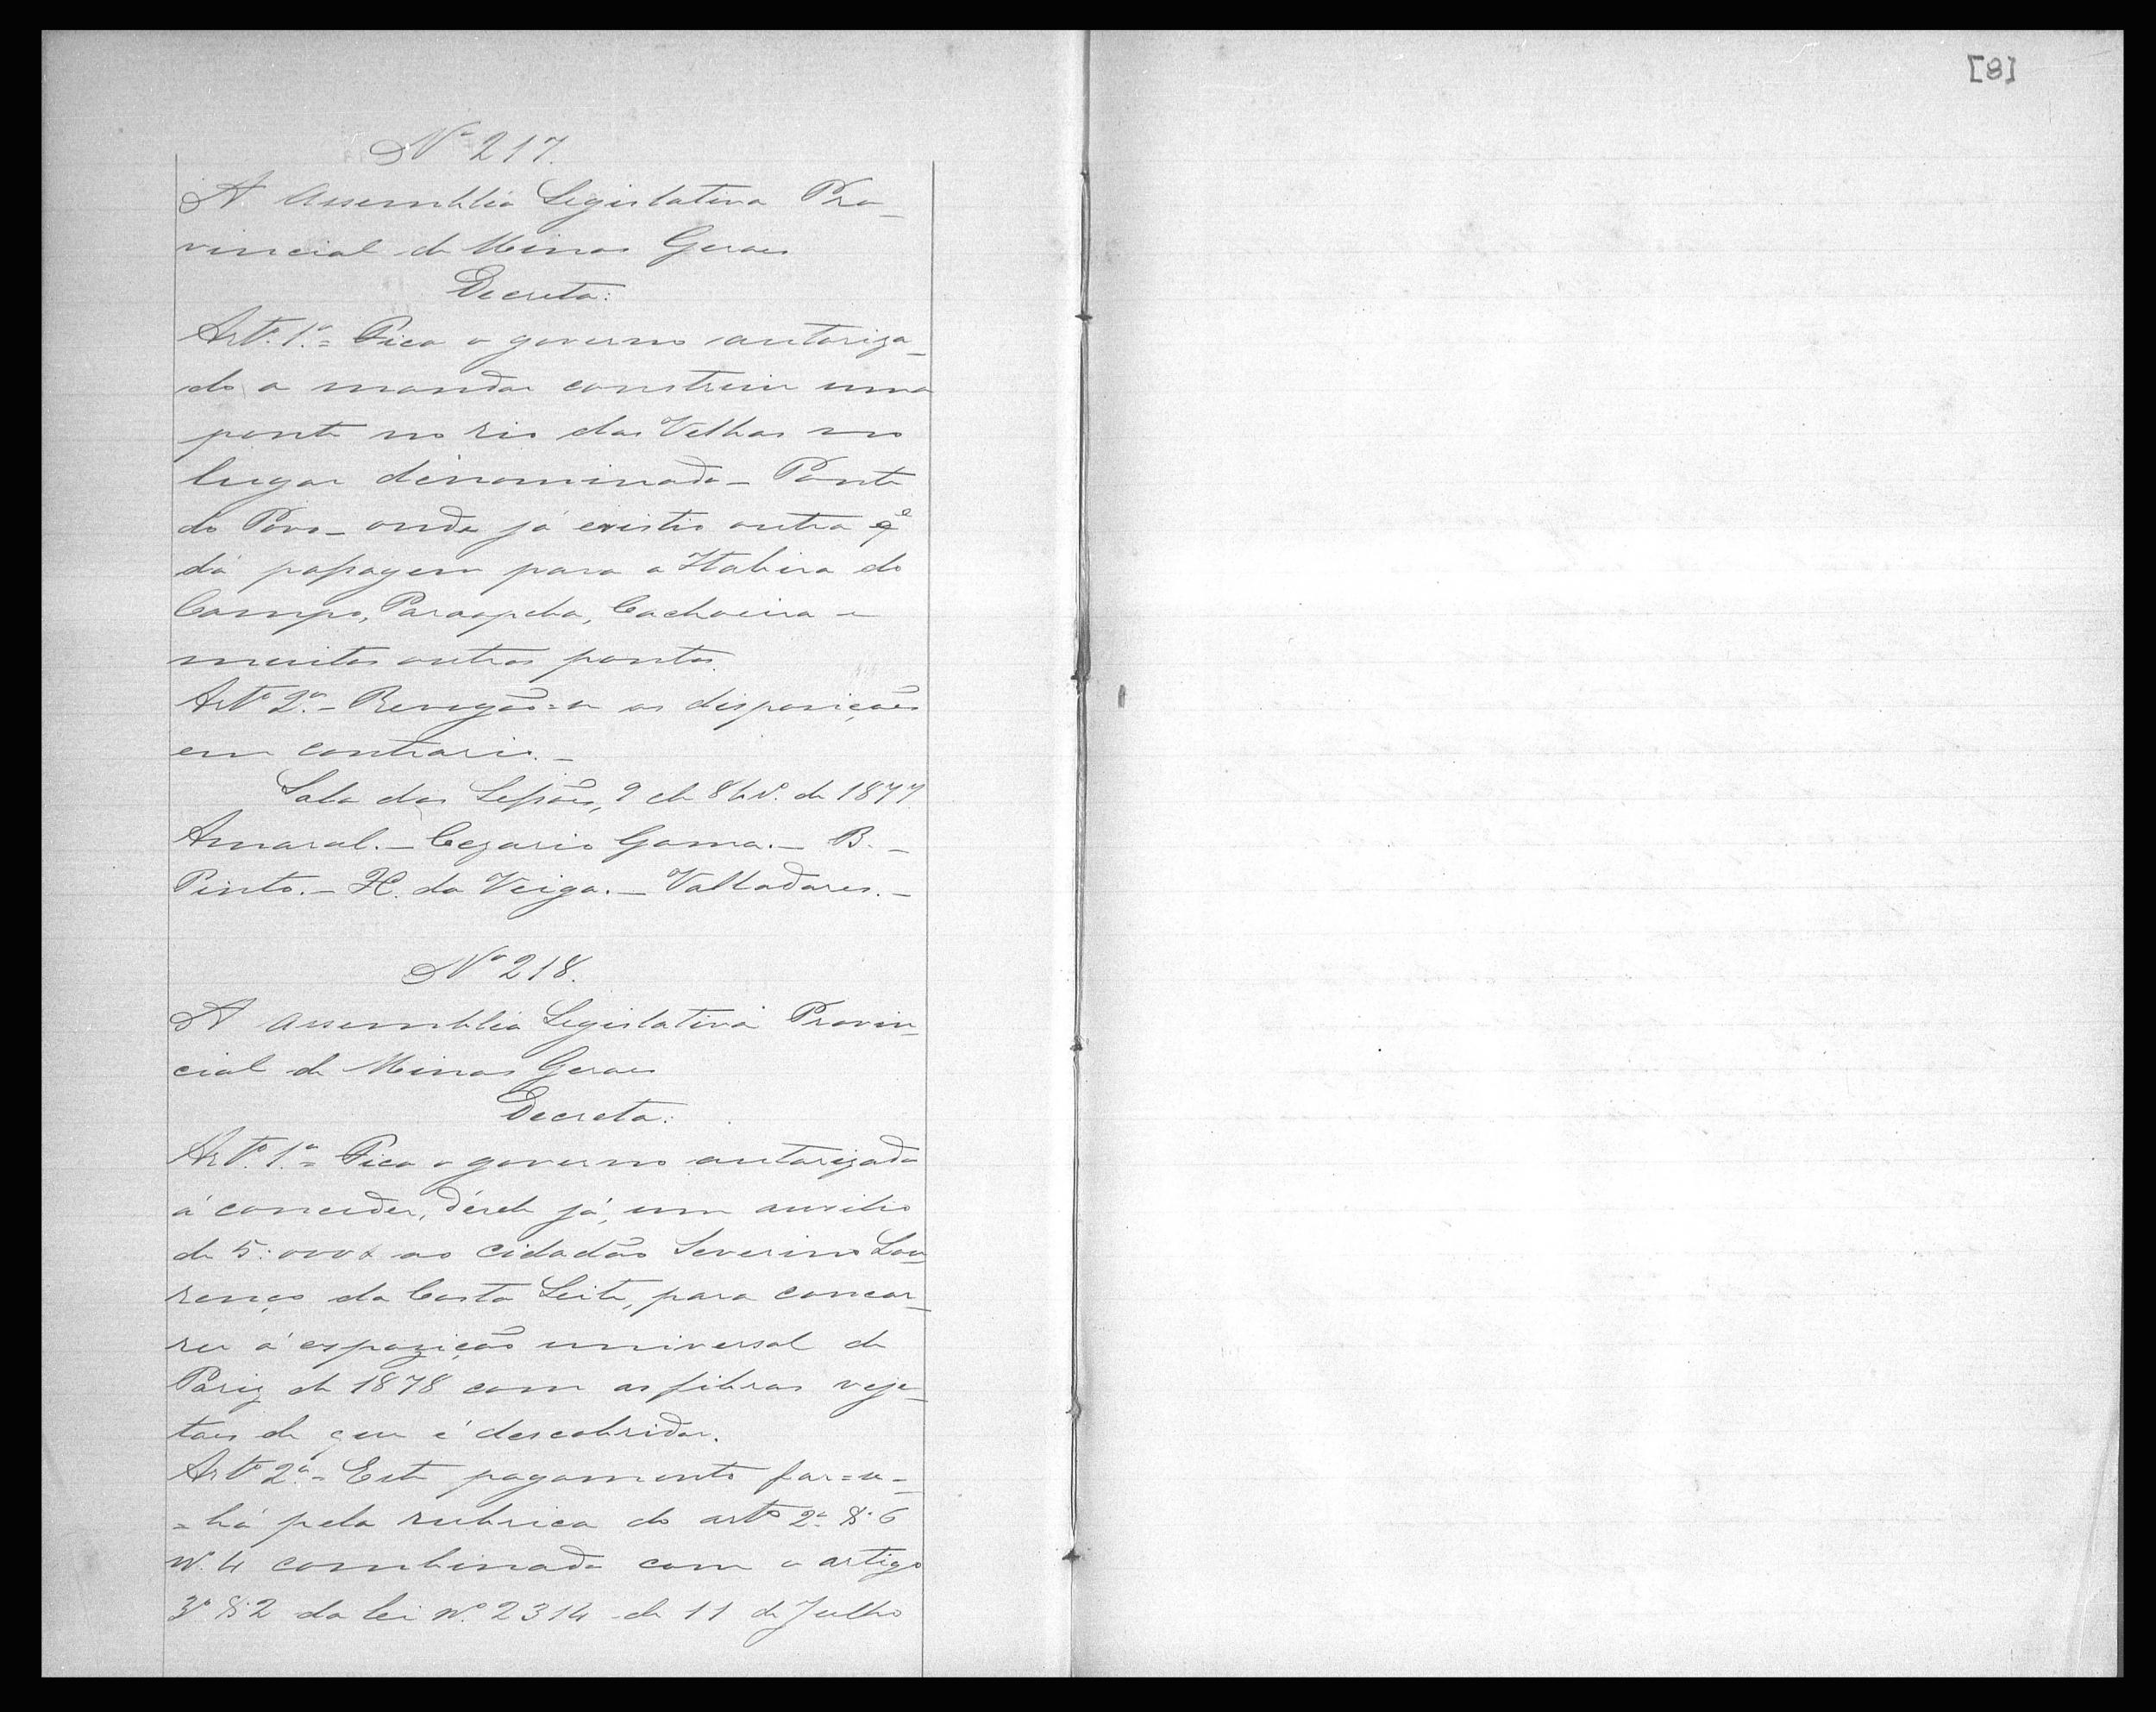 [8]
Nº 217.
A Assembléa Legislativa Pro-
vincial de Minas Geraes
Decreta:
Artº. 1º.= Fica o governo autoriza-
do a mandar construir uma
ponte no rio das Velhas no
lugar denominado - Ponte
do Povo - onde já existio outra q̃
dá passagem para a Itabira do
Campo, Paraopeba, Cachoeira e
muitos outros pontos.
Artº 2º.- Revogão=se as disposições
em contrario. -
Sala das Sessões, 9 de 8brº. de 1877
Amaral. - Cezario Gama. - B. -
Pinto. - H. da Veiga. - Valladares. -
Nº 218.
A Assembléa Legislativa Provin-
cial de Minas Geraes
Decreta:
Artº. 1º.= Fica o governo autorizado
á conceder, désde já, um auxilio
de 5:000$ ao cidadão Severino Lou-
renço da Costa Leite, para concor-
rer á espozição universal de
Pariz de 1878 com as fibras veje-
taes de que é descobridor.
Artº 2º.- Este pagamento far=se-
=há pela rubrica do artº 2º. § 6
nº. 4 combinado com o artigo
3º § 2 da lei nº. 2314 de 11 de Julho